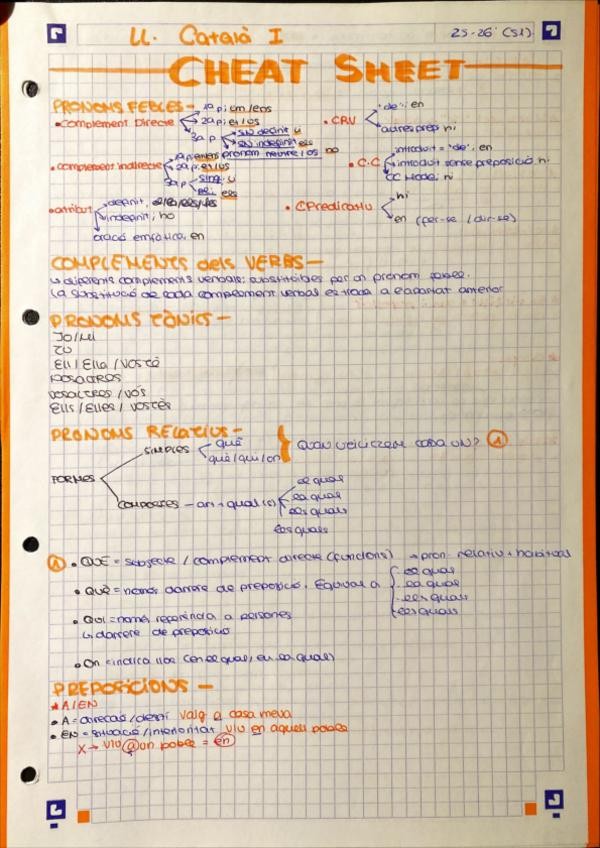 LL. Català I
25-26 (S1)
CHEAT SHEET
PRONOMS FEBLES -
• Complement Directe
1a p: em/ens
2a p: et/us
3a p
SN definit: 
SN indefinit:
pronom neutre/os: ho
• CRV
"de": en
altres prep: hi
• complement indirecte
1a p: em/ens
2a p: et/us
3a p
sing: li
pl: els
• C.C
introduït = "de": en
introduït sense preposició: hi
CC Mode: hi
• atribut
definit: el/la/els/les
indefinit: ho
oració emfàtica: en
• CPredicatiu
hi
en (fer-se / dir-se)
COMPLEMENTS dels VERBS -
↳ diferents complements verbals: substituïbles per un pronom feble.
La substitució de cada complement verbal es troba a l'apartat anterior
PRONOMS TÒNICS -
JO/Mi
TU
Ell / Ella / Vostè
NOSALTRES
VOSALTRES / VÓS
Ells / Elles / Vostès
PRONOMS RELATIUS -
FORMES
SIMPLES
què
què/qui/on
Quan utilitzem cada un? 1
COMPOSTES - art + qual(s)
el qual
la qual
els quals
les quals
1 • QUE = subjecte / complement directe (funcions) → pron. relatiu + habitual
• QUÈ = només darrere de preposició. Equival a
el qual
la qual
els quals
les quals
• QUI = només referència a persones
↳ darrere de preposició
• On = indica lloc (en el qual, en la qual)
PREPOSICIONS -
* A/EN
• A = direcció/destí Vaig a casa meva
• EN = situació/interioritat Viu en aquell poble
X → Viu a un poble = en